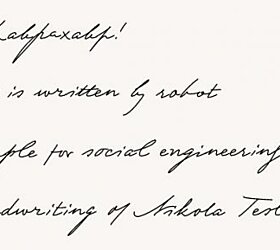 Хабрахабр!
is written by robot
ple for social engineering
dwriting of Nikola Tesl